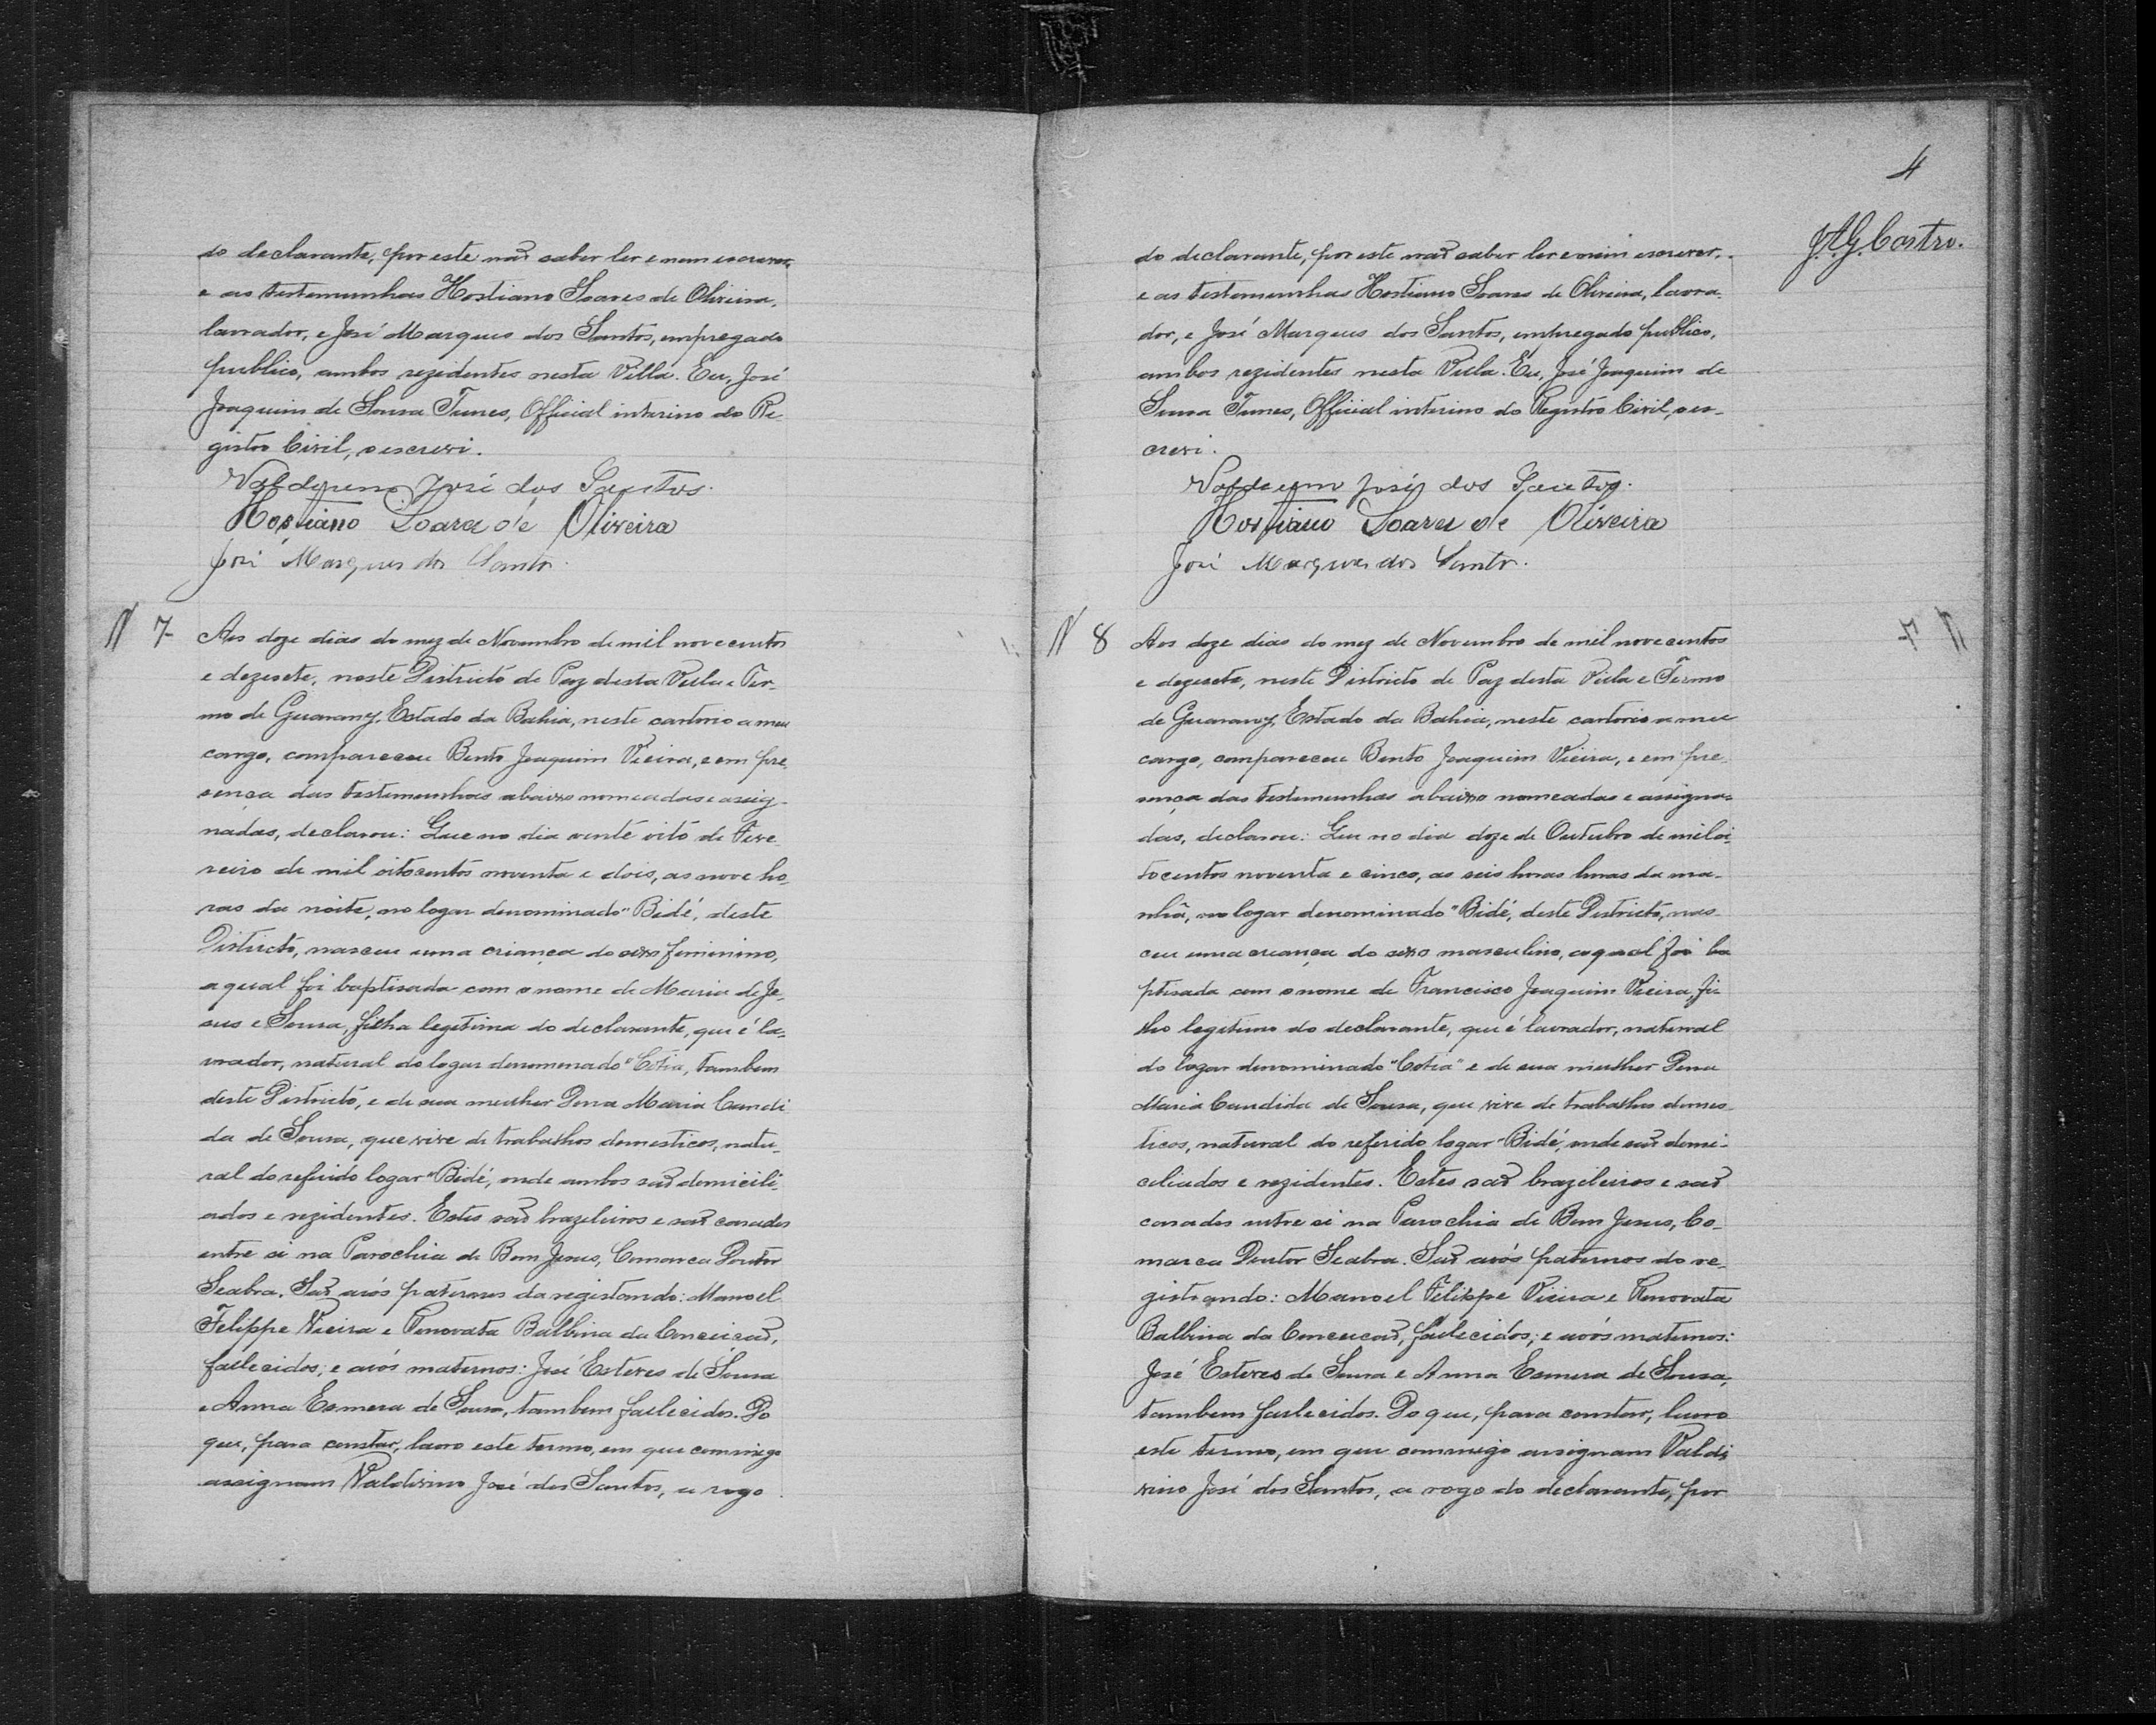 do declarante, por este não saber ler e nem escrever,
e as testemunhas Hostiano Soares de Oliveira,
lavrador, e José Marques dos Santos, empregado
publico, ambos rezidentes nesta Villa. Eu, José
Joaquim de Sousa Tunes, Official interino do Re-
gistro Civil, o escrevi.
José dos Santos.
Hostiano Soares de Oliveira
José Marques dos Santos.
N 7 Aos doze dias do mez de Novembro de mil novecentos
e dezesete, neste Districto de Paz desta Villa e Ter-
mo de Guarany, Estado da Bahia, neste cartorio a meu
cargo, compareceu Bento Joaquim Vieira, e em pre-
sença das testemunhas abaixo nomeadas e assig-
nadas, declarou: Que no dia vinte oito de Feve-
reiro de mil oitocentos noventa e dois, as nove ho-
ras da noite, no logar denominado "Bidé", deste
Districto, nasceu uma criança do sexo feminino,
a qual foi baptisada com o nome de Maria de Je-
sus e Sousa, filha legitima do declarante, que é la-
vrador, natural do logar denomenado "Cotia", tambem
deste Districto, e de sua mulher Dona Maria Candi-
da de Sousa, que vive de trabalhos domesticos, natu-
ral do referido logar "Bidé", onde ambos são domicili-
ados e rezidentes. Estes são brazileiros e são casados
entre si na Parochia de Bom Jesus, Comarca Doutor
Seabra. São avós paternos da registando: Manoel
Felippe Vieira e Renovata Balbina da Conceicão,
fallecidos; e avós maternos: José Esteves de Sousa
e Anna Esmera de Sousa, tambem fallecidos. Do
que, para constar, lavro este termo, em que commigo
assignam Valdivino José dos Santos, a rogo
4
J.A.G. Castro.
do declarante, por este não saber ler e nem escrever,
e as testemunhas Hostiano Soares de Oliveira, lavra-
dor, e José Marques dos Santos, empregado publico,
ambos rezidentes nesta Villa. Eu, José Joaquim de
Sousa Tunes, Official interino do Registro Civil, o es-
crevi.
José dos Santos.
Hostiano Soares de Oliveira
José Marques dos Santos.
N 8 Aos doze dias do mez de Novembro de mil novecentos
e dezesete, neste Districto de Paz desta Villa e Termo
de Guarany, Estado da Bahia, neste cartorio a meu
cargo, compareceu Bento Joaquim Vieira, e em pre-
sença das testemunhas abaixo nomeadas e assigna-
das, declarou: Que no dia doze de Outubro de mil oi-
tocentos noventa e cinco, as seis horas horas da ma-
nhã, no logar denominado "Bidé", deste Districto, nas-
ceu uma criança do sexo masculino, a qual foi ba
ptisada com o nome de Francisco Joaquim Vieira, fi-
lho legitimo do declarante, que é lavrador, natural
do logar denominado "Cotia" e de sua mulher Dona
Maria Candida de Sousa, que vive de trabalhos domes-
ticos, natural do referido logar "Bidé", onde são domi-
ciliados e rezidentes. Estes são brazileiros e são
casados entre si na Parochia de Bom Jesus, Co-
marca Doutor Seabra. São avós paternos do re-
gistrando: Manoel Felippe Vieira e Renovata
Balbina da Conceicão, fallecidos; e avós maternos:
José Esteves de Sousa e Anna Esmera de Sousa,
tambem fallecidos. Do que, para constar, lavro
este termo, em que commigo assignam Valdi
vino José dos Santos, a rogo do declarante, por